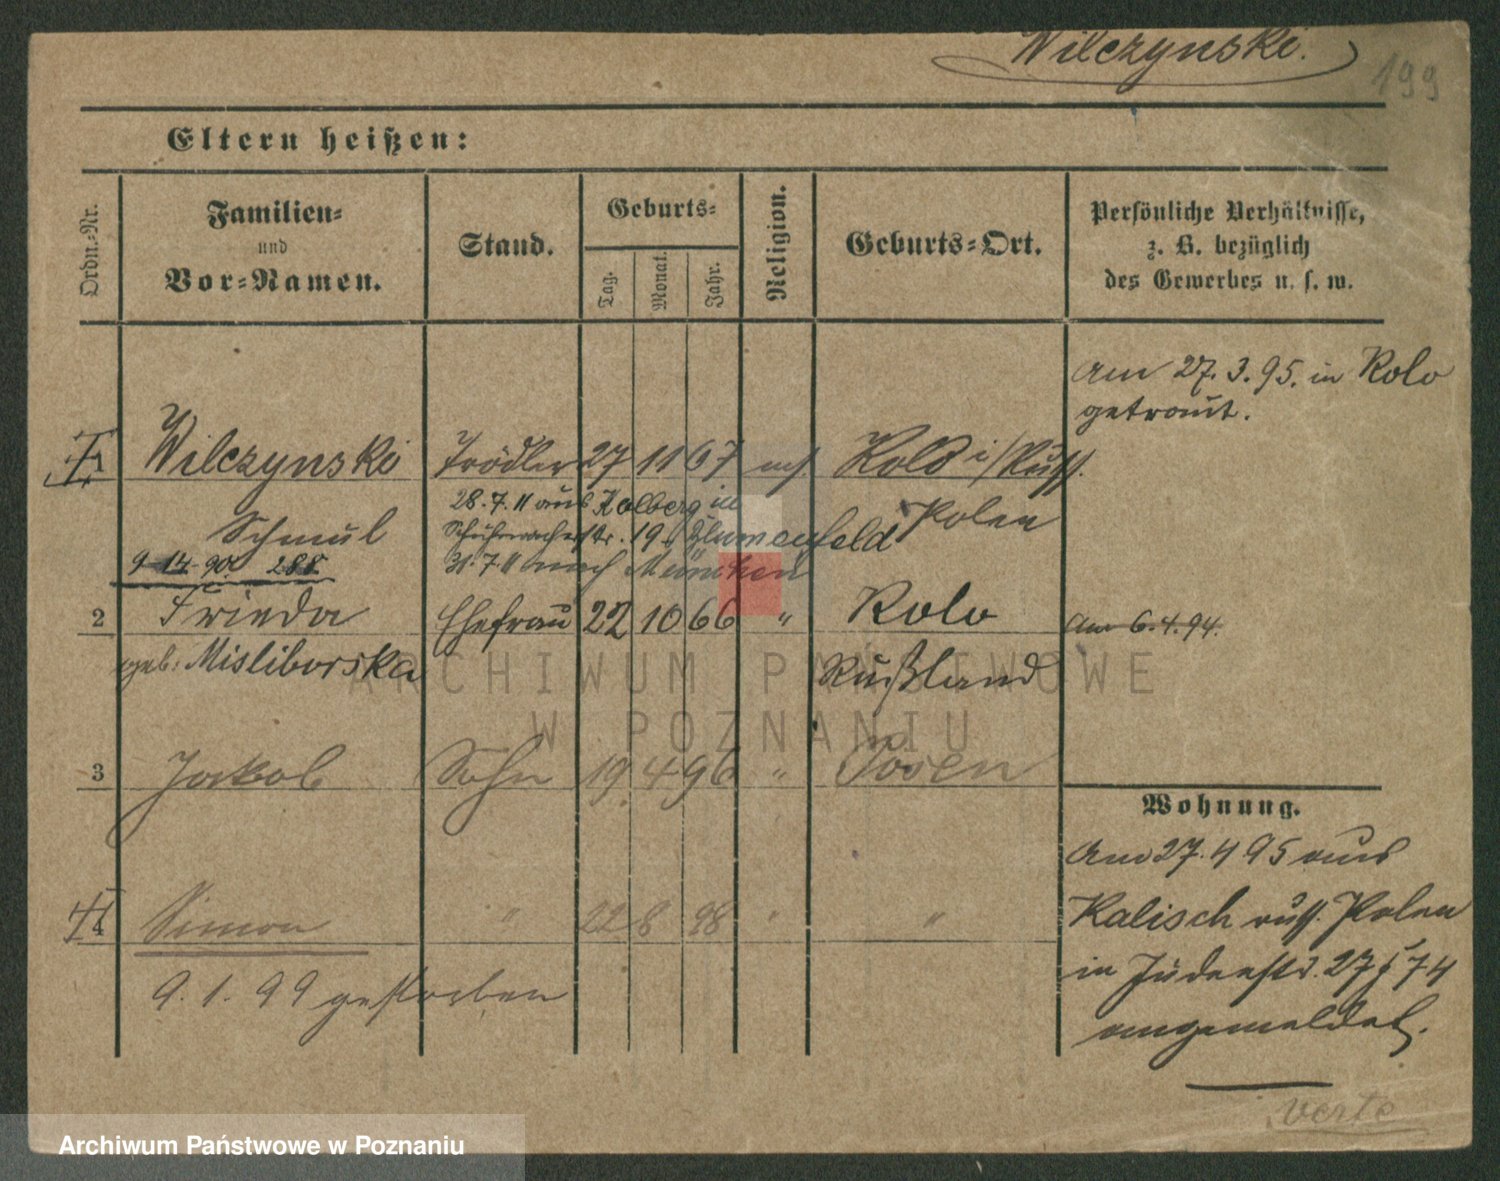 Wilczynski.
199
Eltern heißen:
Ordn.-Nr.
Familien-
und
Vor-Namen.
Stand.
Geburts-
Tag.
Monat.
Jahr.
Religion.
Geburts-Ort.
Persönliche Verhältnisse,
z. B. bezüglich
des Gewerbes u. s. w.
am 27. 3. 95. in Kolo
getraut.
1 Wilczynski Trödler 27 11 67 mos. Kolo i/Russ.
28. 7. 11 aus Kolberg in
Schmul Schuhmacherstr. 19 Blumenfeld Polen
9 14 90 288 31. 7. 11 nach München
2 Frieda Ehefrau 22 10 66 " Kolo
am 6. 4. 94.
geb: Misliborska Rußland
3 Jakob Sohn 19. 4 96 " Posen
Wohnung.
Am 27. 4 95 aus
4 Simon " 22 8 98 " "
Kalisch russ. Polen
in Judenstr. 27 74
9. 1. 99 gestorben
angemeldet.
verte
ARCHIWUM PAŃSTWOWE
W POZNANIU
Archiwum Państwowe w Poznaniu